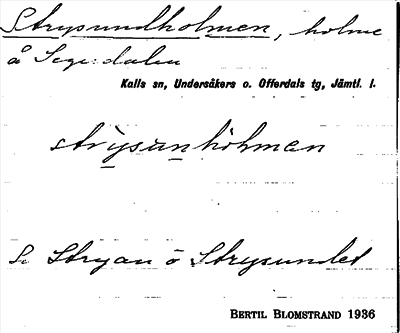 Strysundholmen, holme
å
Kalls sn, Undersåkers o. Offerdals tg, Jämtl. l.
strysunhòhmen
Se Stryan o Strysundet
BERTIL BLOMSTRAND 1936